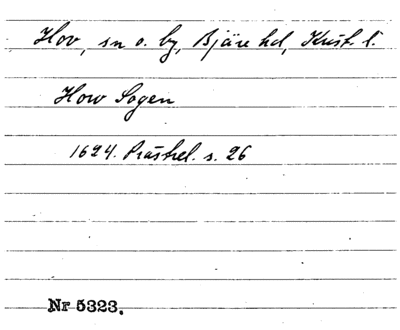 Hov, sn o. by, Bjäre hd, Krist. l.
How Sogen
1624. Prästrel. s. 26
Nr 5323.